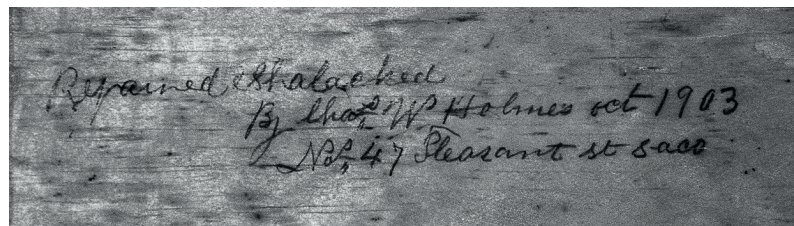 Repaired & Shalacked
By Chas W Holmes oct 1903
No 47 Pleasant st saco